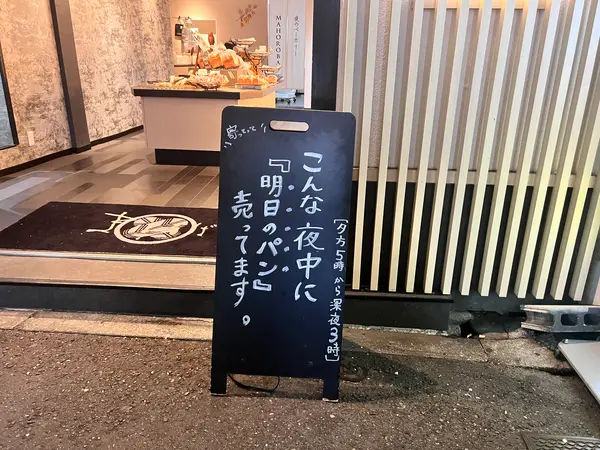 寄ってって
[夕方5時から深夜3時]
こんな夜中に
『明日のパン』
売ってます。
夜のベーカリー
MAHOROBA